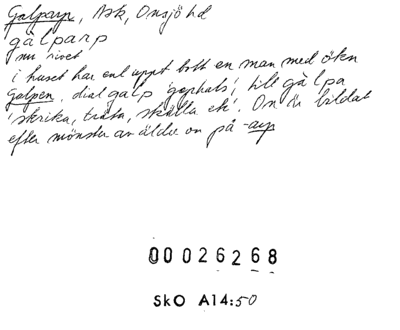 Galparp, Ask, Onsjö hd
gàlparp
nu rivet
i huset har enl uppt bott en man med ökn
Galpen, dial galp 'gaphals', till gàlpa
'skrika, träta, skälla etc'. On är bildat
efter mönster av äldre on på -arp
00026268
SkO A14:50